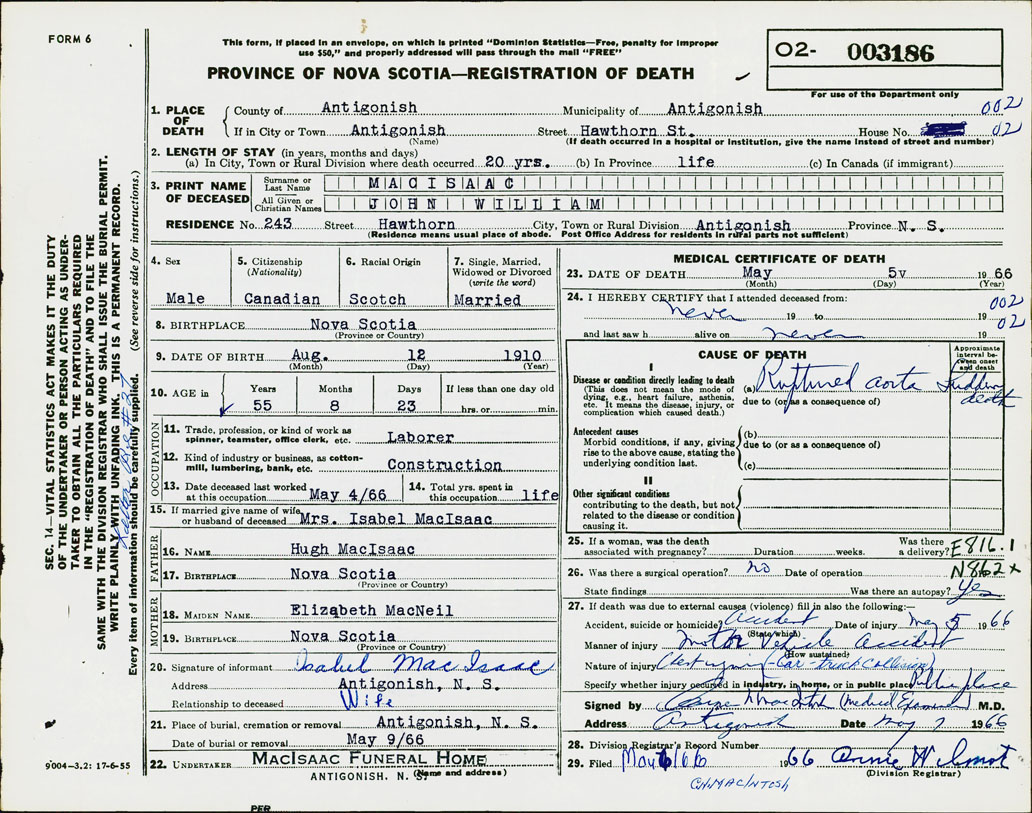 FORM 6
This form, if placed in an envelope, on which is printed "Dominion Statistics—Free, penalty for improper
use $50," and properly addressed will pass through the mail "FREE"
PROVINCE OF NOVA SCOTIA—REGISTRATION OF DEATH
02- 003186
For use of the Department only
1. PLACE OF DEATH
County of Antigonish Municipality of Antigonish 002
If in City or Town Antigonish Street Hawthorn St. House No. 02
(Name) (If death occurred in a hospital or institution, give the name instead of street and number)
2. LENGTH OF STAY (in years, months and days)
(a) In City, Town or Rural Division where death occurred 20 yrs. (b) In Province life (c) In Canada (if immigrant)
3. PRINT NAME OF DECEASED
Surname or Last Name MACISAAC
All Given or Christian Names JOHN WILLIAM
RESIDENCE No. 243 Street Hawthorn City, Town or Rural Division Antigonish Province N. S.
(Residence means usual place of abode. Post Office Address for residents in rural parts not sufficient)
4. Sex
Male
5. Citizenship
(Nationality)
Canadian
6. Racial Origin
Scotch
7. Single, Married,
Widowed or Divorced
(write the word)
Married
8. BIRTHPLACE Nova Scotia
(Province or Country)
9. DATE OF BIRTH Aug. 12 1910
(Month) (Day) (Year)
10. AGE in
Years Months Days If less than one day old
55 8 23 hrs. or min.
OCCUPATION
11. Trade, profession, or kind of work as
spinner, teamster, office clerk, etc. Laborer
12. Kind of industry or business, as cotton-
mill, lumbering, bank, etc. Construction
13. Date deceased last worked
at this occupation May 4/66
14. Total yrs. spent in
this occupation life
15. If married give name of wife
or husband of deceased Mrs. Isabel MacIsaac
FATHER
16. NAME Hugh MacIsaac
17. BIRTHPLACE Nova Scotia
(Province or Country)
MOTHER
18. MAIDEN NAME Elizabeth MacNeil
19. BIRTHPLACE Nova Scotia
(Province or Country)
20. Signature of informant Isabel MacIsaac
Address Antigonish, N. S.
Relationship to deceased Wife
21. Place of burial, cremation or removal Antigonish, N. S.
Date of burial or removal May 9/66
22. UNDERTAKER MACISAAC FUNERAL HOME
ANTIGONISH, N. S. (Name and address)
PER
MEDICAL CERTIFICATE OF DEATH
23. DATE OF DEATH May 5v 1966
(Month) (Day) (Year)
24. I HEREBY CERTIFY that I attended deceased from: 002
never 19 to 19 02
and last saw h alive on never 19
CAUSE OF DEATH
Approximate
interval be-
tween onset
and death
I
Disease or condition directly leading to death
(This does not mean the mode of
dying, e.g., heart failure, asthenia,
etc. It means the disease, injury, or
complication which caused death.)
(a) Ruptured aorta Sudden death
due to (or as a consequence of)
Antecedent causes
Morbid conditions, if any, giving
rise to the above cause, stating the
underlying condition last.
(b)
due to (or as a consequence of)
(c)
II
Other significant conditions
contributing to the death, but not
related to the disease or condition
causing it.
25. If a woman, was the death
associated with pregnancy? Duration weeks.
Was there
a delivery? E816.1
26. Was there a surgical operation? no Date of operation N862x
State findings Was there an autopsy? yes
27. If death was due to external causes (violence) fill in also the following:—
Accident, suicide or homicide? Accident Date of injury May 5 1966
(State which)
Manner of injury Motor Vehicle accident
(How sustained)
Nature of injury (Chest injury - Car - truck collision)
Specify whether injury occurred in industry, in home, or in public place Public place
Signed by (Medical Examiner) M.D.
Address Antigonish Date May 7 1966
28. Division Registrar's Record Number
29. Filed May 6/66 1966 Annie Wilmot
(Division Registrar)
C.N. MACINTOSH
SEC. 14—VITAL STATISTICS ACT MAKES IT THE DUTY
OF THE UNDERTAKER OR PERSON ACTING AS UNDER-
TAKER TO OBTAIN ALL THE PARTICULARS REQUIRED
IN THE "REGISTRATION OF DEATH" AND TO FILE THE
SAME WITH THE DIVISION REGISTRAR WHO SHALL ISSUE THE BURIAL PERMIT.
WRITE PLAINLY WITH UNFADING INK. THIS IS A PERMANENT RECORD.
Every item of information should be carefully supplied. (See reverse side for instructions.)
9004-3.2: 17-6-55